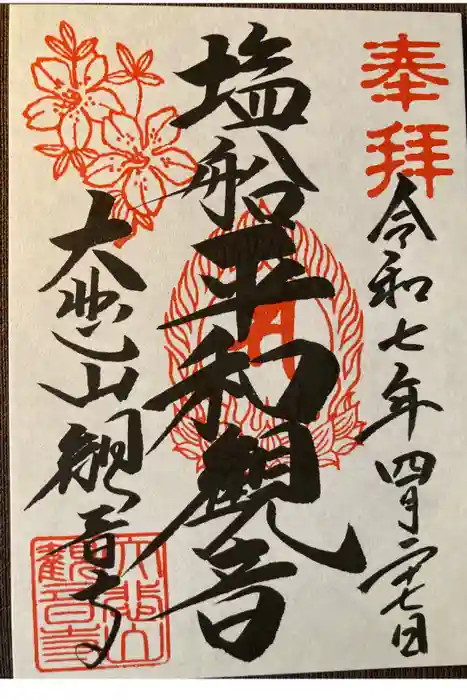 奉拝
令和七年四月二十七日
塩船平和観音
大悲山観音寺
大悲山
観音寺